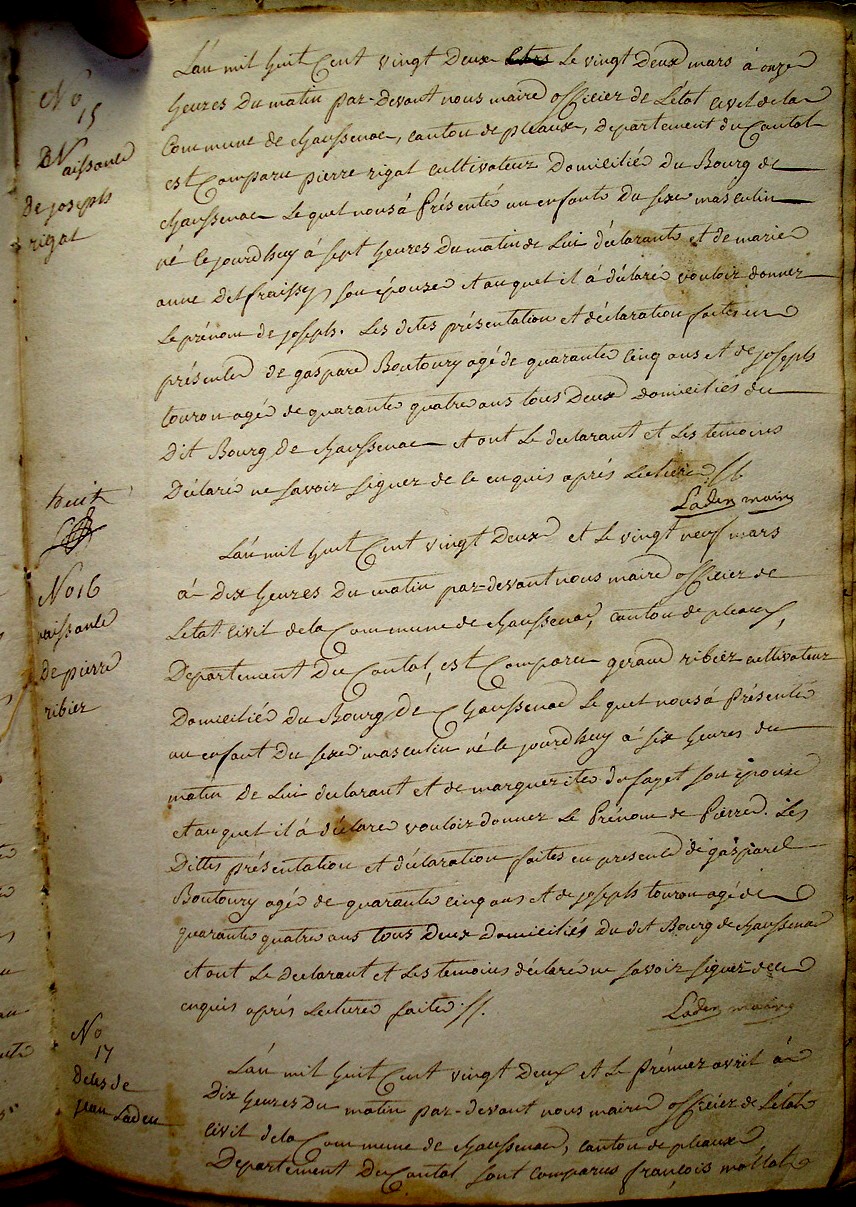 No
15
Naissance
de joseph
rigal
L'an mil huit Cent vingt Deux Le vingt Deux mars à onze
heures Du matin par-devant nous maire officier de L'état Civil de la
Commune de chaussenac, canton de pleaux, Departement du Cantal
est Comparu pierre rigal cultivateur Domicilié Du Bourg de
chaussenac Le quel nous à Présenté un enfant Du sexe masculin
né le jourdhuy à sept heures Du matin de Lui déclarant et de marie
anne Delfraissy son épouse et au quel il à déclaré vouloir donner
Le prénom de joseph. Les dites présentation et déclaration faites en
présence de gaspard Boutoury agé de quarante cinq ans et de joseph
touron agé de quarante quatre ans tous Deux domiciliés du
Dit Bourg De chaussenac et ont Le declarant et Les temoins
Déclaré ne savoir signer de ce enquis aprés Lecture
Laden maire
huit
L'an mil huit Cent vingt Deux et Le vingt neuf mars
à Dix heures Du matin par-devant nous maire officier de
L'etat Civil de la Commune de chaussenac, canton de pleaux,
Departement Du Cantal, est Comparu geraud ribier cultivateur
Domicilié Du Bourg De Chaussenac Le quel nous à Présenté
un enfant Du sexe masculin né le jourdhuy à six heures du
matin De Lui declarant et de marguerite dufayet son épouse
et au quel il à déclaré vouloir donner Le Prénom de Pierre. Les
Dittes présentation et déclaration faites en presence de gaspard
Boutoury agé de quarante cinq ans et de joseph touron agé de
quarante quatre ans tous Deux Domiciliés du dit Bourg de chaussenac
et ont Le Declarant et Les temoins déclaré ne savoir signer de ce
enquis aprés Lecture faite
Laden maire
No 16
naissance
De pierre
ribier
No
17
Deces de
jean Laden
L'an mil huit Cent vingt Deux et Le Prémier avril à
Dix heures Du matin par-devant nous maire officier de L'état
Civil de la Commune de chaussenac, canton de pleaux
Departement Du Cantal sont comparus françois